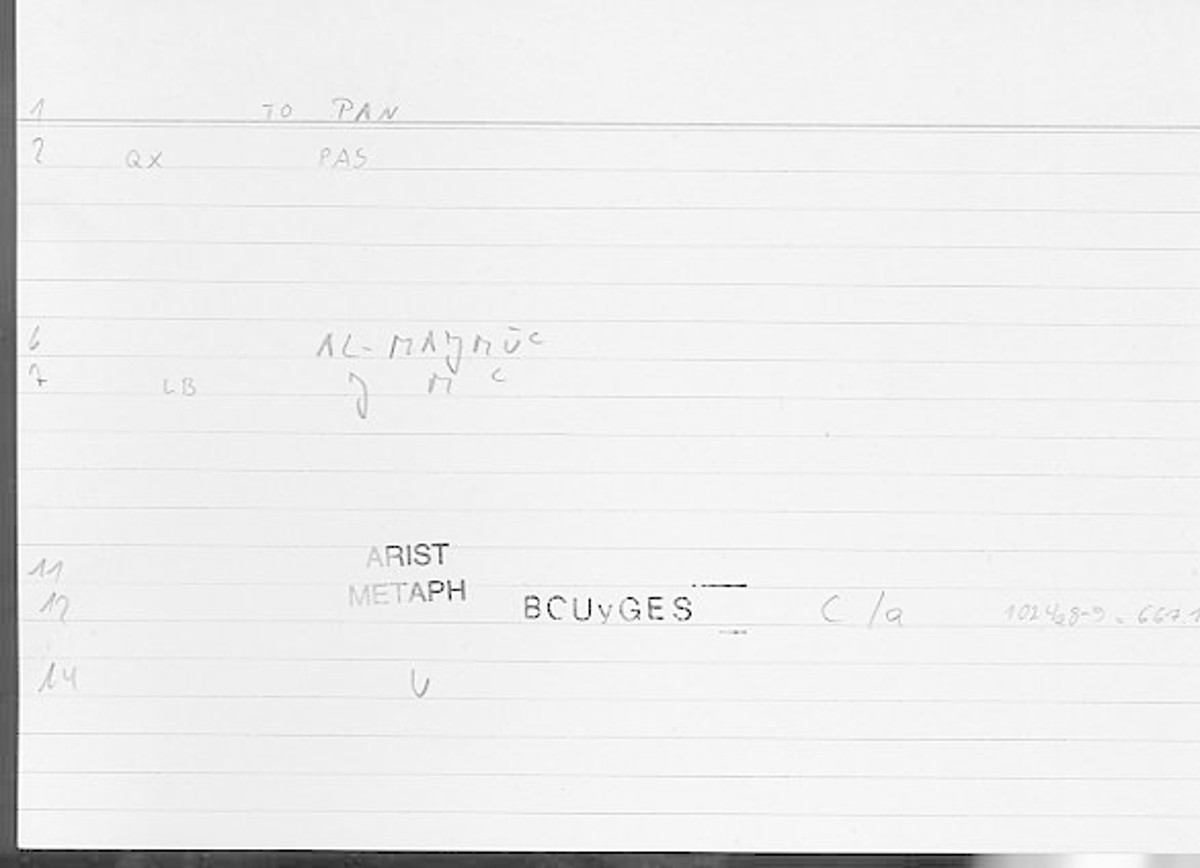 1 TO PAN
2 QX PAS
6 AL-MAJMŪC
7 LB J M C
11 ARIST
12 METAPH BCUyGES C/a
14 U